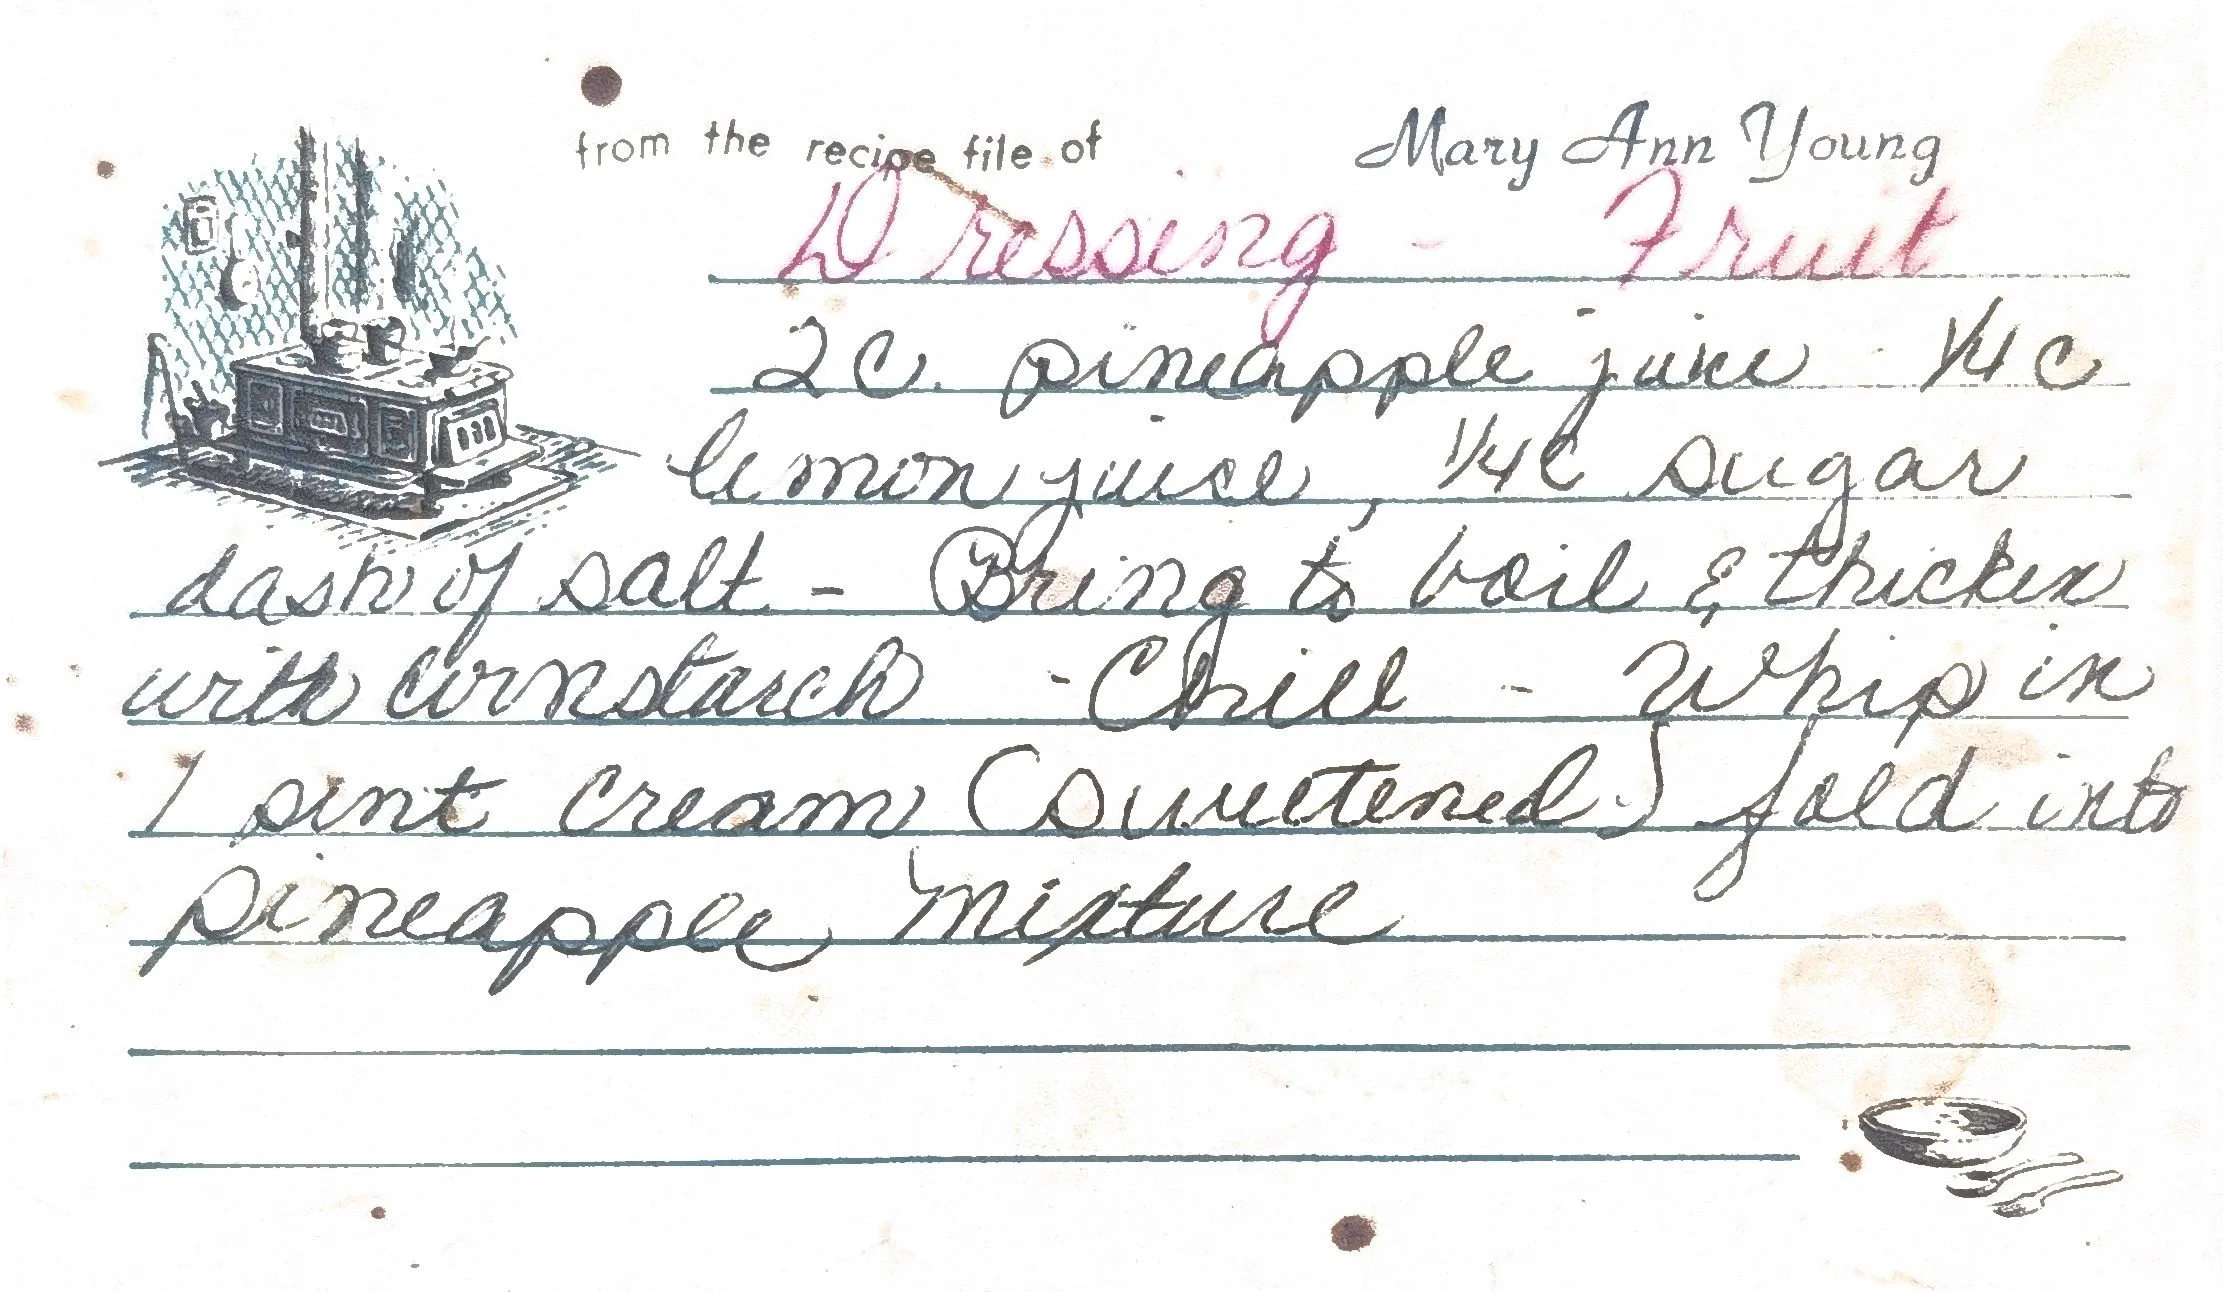 from the recipe file of Mary Ann Young
Dressing - Fruit
2 C. pineapple juice 1/4 C
lemon juice, 1/4 C sugar
dash of salt - Bring to boil & thicken
with cornstarch - Chill - Whip in
1 pint cream (sweetened) fold into
pineapple mixture